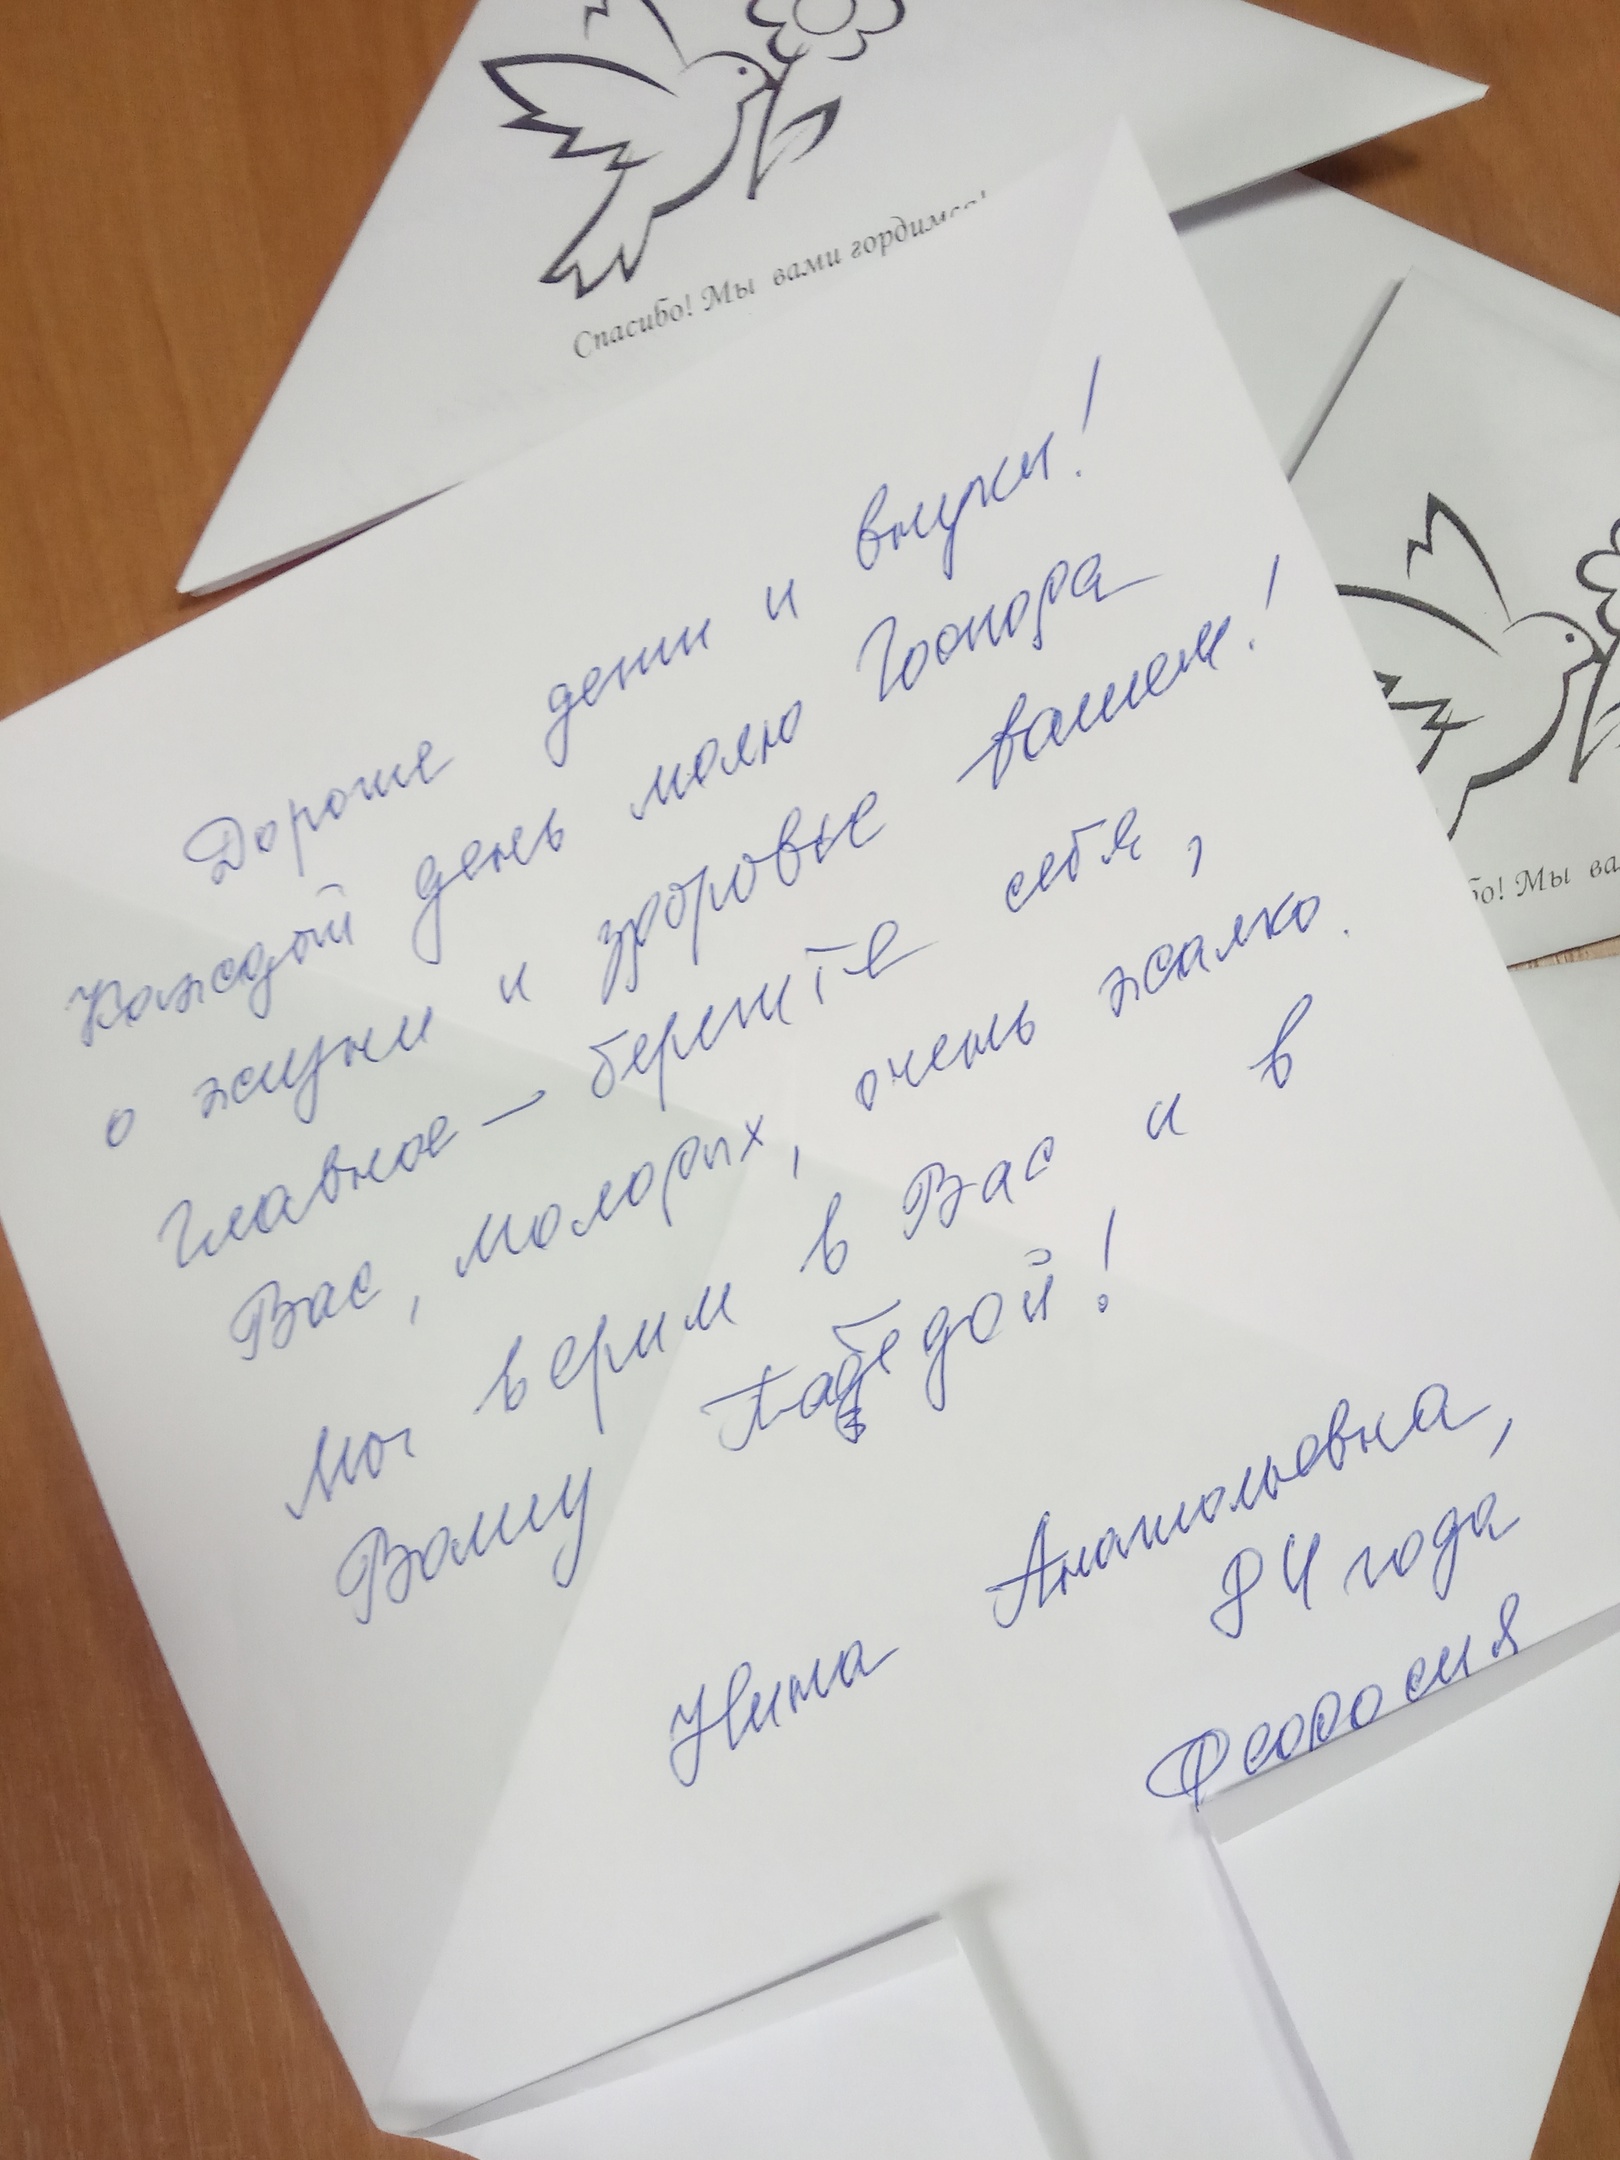 Спасибо! Мы вами гордимся!
бо! Мы ва
Дорогие дети и внуки!
Каждый день молю Господа
о жизни и здоровье вашем!
Главное — берегите себя,
Вас, молодых, очень жалко.
Мы верим в Вас и в
Вашу победой!
Нина Анатольевна,
84 года
Феодосия